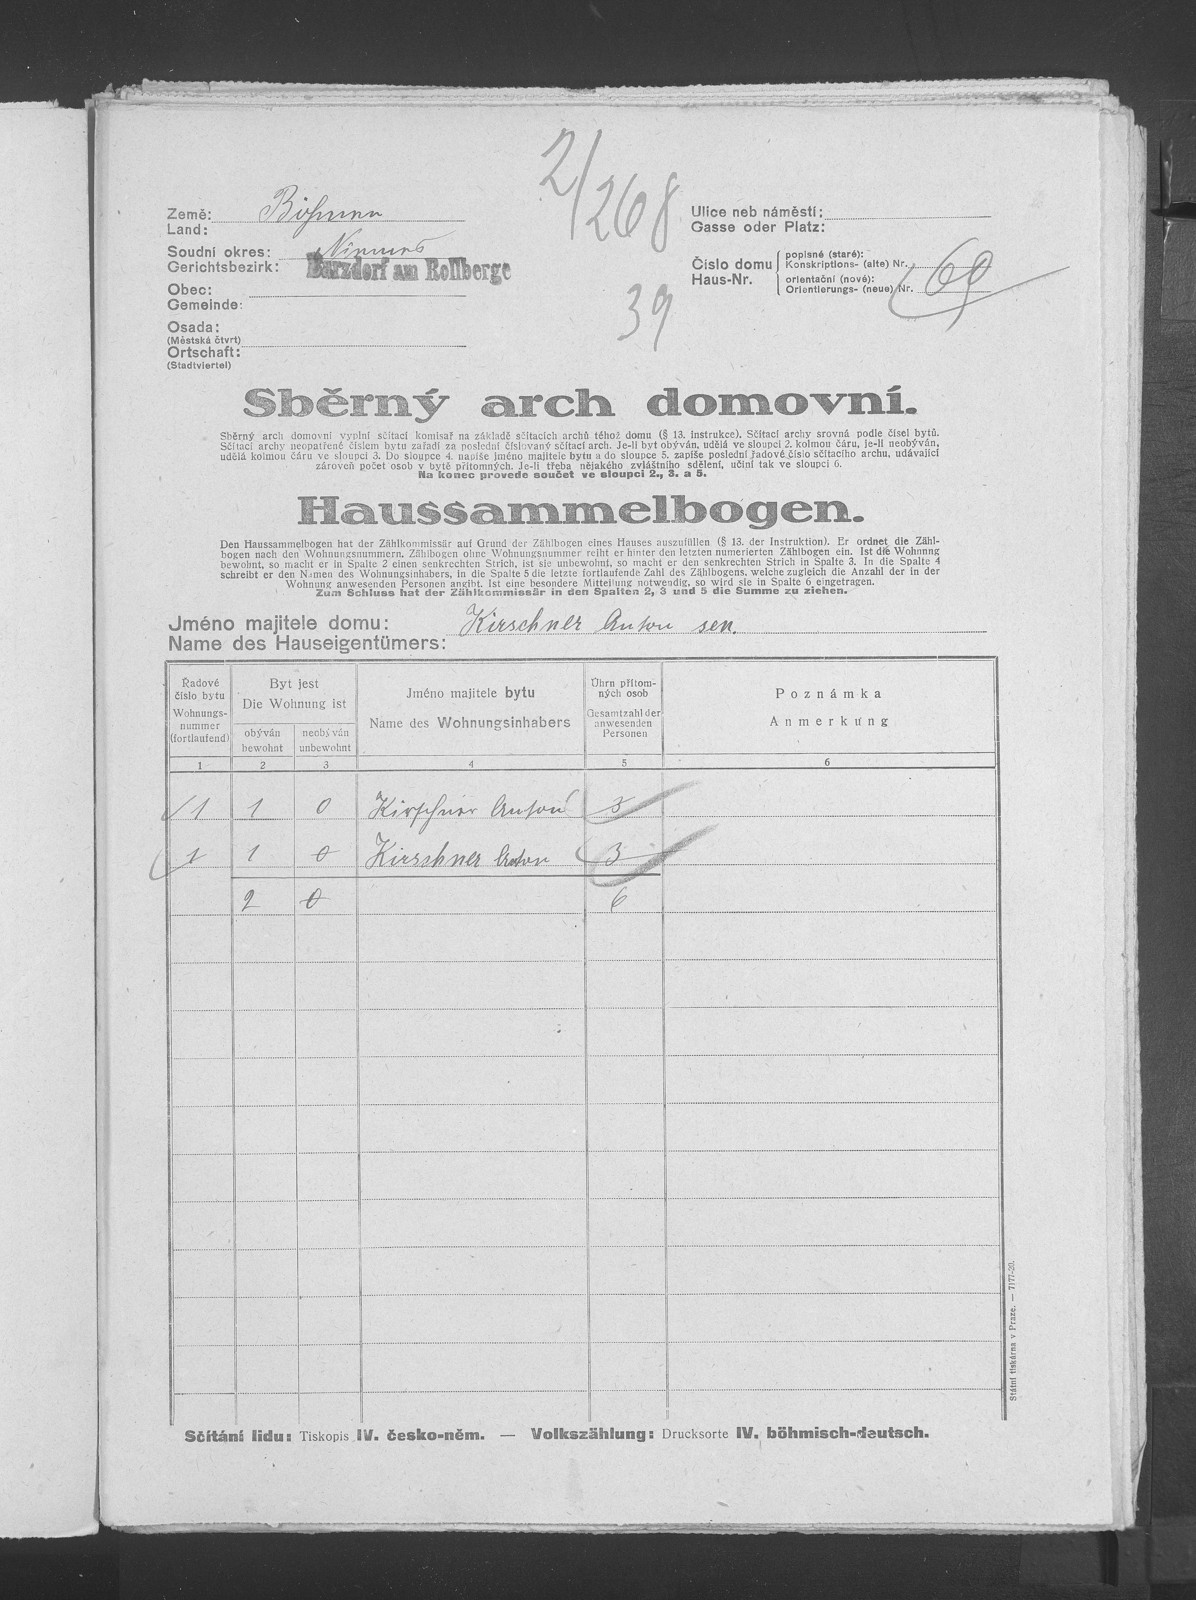 2/268
39
Země: Böhmen
Land:
Soudní okres: Niemes
Gerichtsbezirk: Barzdorf am Rollberge
Obec:
Gemeinde:
Osada:
(Městská čtvrť)
Ortschaft:
(Stadtviertel)
Ulice neb náměstí:
Gasse oder Platz:
Číslo domu
Haus-Nr.
popisné (staré):
Konskriptions- (alte) Nr.
orientační (nové):
Orientierungs- (neue) Nr.
Sběrný arch domovní.
Sběrný arch domovní vyplní sčítací komisař na základě sčítacích archů téhož domu (§ 13. instrukce). Sčítací archy srovná podle čísel bytů.
Sčítací archy neopatřené číslem bytu zařadí za poslední číslovaný sčítací arch. Je-li byt obýván, udělá ve sloupci 2. kolmou čáru, je-li neobýván,
udělá kolmou čáru ve sloupci 3. Do sloupce 4. napíše jméno majitele bytu a do sloupce 5. zapíše poslední řadové číslo sčítacího archu, udávající
zároveň počet osob v bytě přítomných. Je-li třeba nějakého zvláštního sdělení, učiní tak ve sloupci 6.
Na konec provede součet ve sloupci 2., 3. a 5.
Haussammelbogen.
Den Haussammelbogen hat der Zählkommissär auf Grund der Zählbogen eines Hauses auszufüllen (§ 13. der Instruktion). Er ordnet die Zähl-
bogen nach den Wohnungsnummern. Zählbogen ohne Wohnungsnummer reiht er hinter den letzten numerierten Zählbogen ein. Ist die Wohnnng
bewohnt, so macht er in Spalte 2 einen senkrechten Strich, ist sie unbewohnt, so macht er den senkrechten Strich in Spalte 3. In die Spalte 4
schreibt er den Namen des Wohnungsinhabers, in die Spalte 5 die letzte fortlaufende Zahl des Zählbogens, welche zugleich die Anzahl der in der
Wohnung anwesenden Personen angibt. Ist eine besondere Mitteilung notwendig, so wird sie in Spalte 6 eingetragen.
Zum Schluss hat der Zählkommissär in den Spalten 2, 3 und 5 die Summe zu ziehen.
Jméno majitele domu: Kirschner Anton sen.
Name des Hauseigentümers:
Řadové číslo bytu
Wohnungs-nummer (fortlaufend)
Byt jest
Die Wohnung ist
obýván
bewohnt
neobýván
unbewohnt
Jméno majitele bytu
Name des Wohnungsinhabers
Úhrn přítom-ných osob
Gesamtzahl der anwesenden Personen
Poznámka
Anmerkung
1 2 3 4 5 6
1 1 0 Kirschner Anton 3
1 1 0 Kirschner Anton 3
2 0 6
Státní tiskárna v Praze. — 7177-20.
Sčítání lidu: Tiskopis IV. česko-něm. — Volkszählung: Drucksorte IV. böhmisch-deutsch.